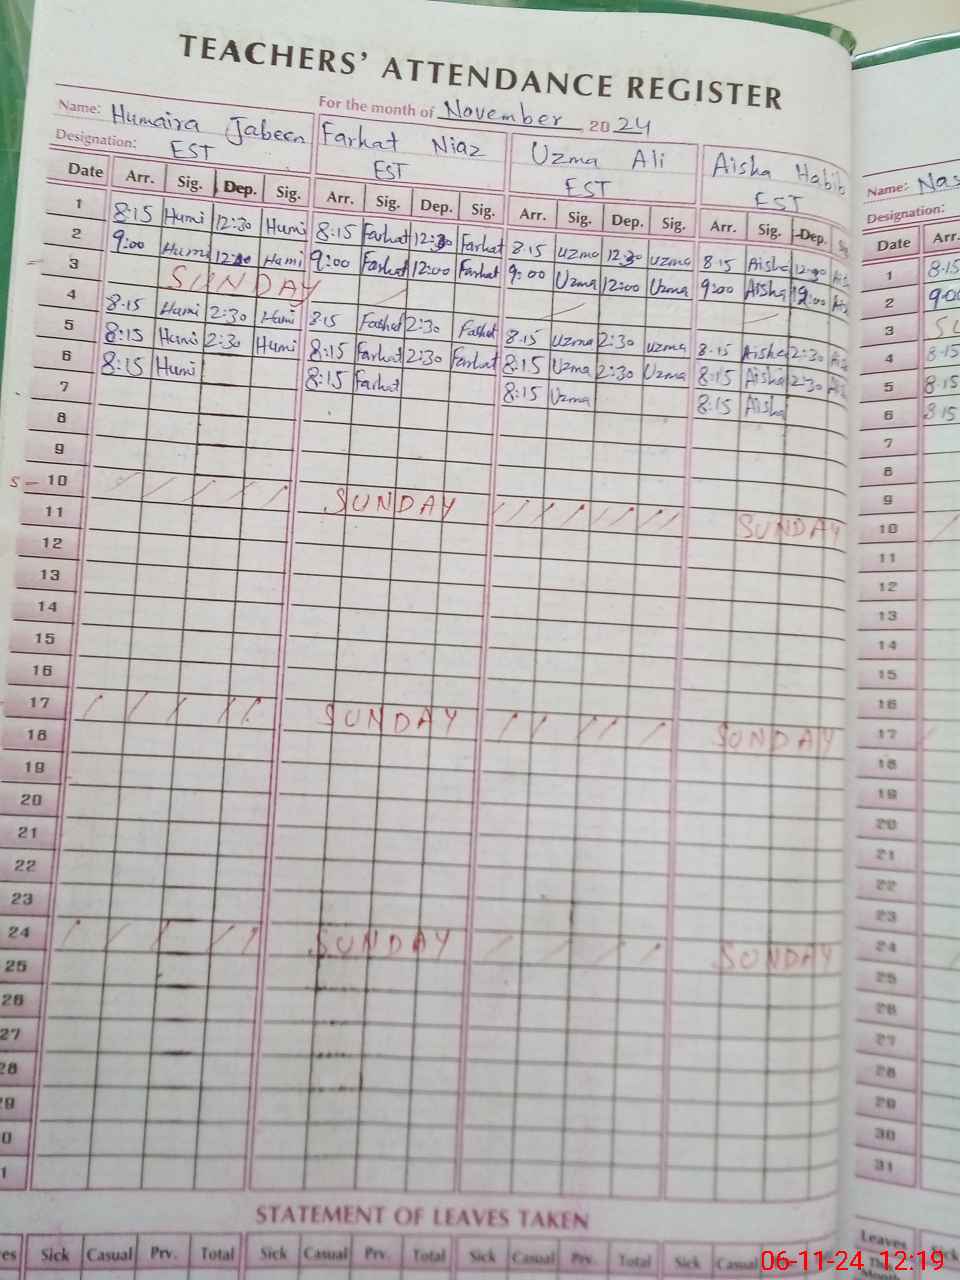 TEACHERS' ATTENDANCE REGISTER
For the month of November, 2024
Name: Humaira Jabeen Farhat Niaz Uzma Ali Aisha Habib Name: Nas
Designation: EST EST EST EST Designation:
Date Arr. Sig. Dep. Sig. Arr. Sig. Dep. Sig. Arr. Sig. Dep. Sig. Arr. Sig. Dep. Date Arr.
1 8:15 Humi 12:30 Humi 8:15 Farhat 12:30 Farhat 8.15 Uzma 12:30 Uzma 8.15 Aisha 12:30 Ais 1 8.15
2 9:00 Humi 12:00 Humi 9:00 Farhat 12:00 Farhat 9:00 Uzma 12:00 Uzma 9:00 Aisha 12:00 Ais 2 9:00
3 SUNDAY 3 SU
4 8:15 Humi 2:30 Humi 8:15 Farhat 2:30 Farhat 8.15 Uzma 2:30 Uzma 8.15 Aisha 2:30 Ais 4 8.15
5 8:15 Humi 2:30 Humi 8:15 Farhat 2:30 Farhat 8:15 Uzma 2:30 Uzma 8:15 Aisha 2:30 Ais 5 8.15
6 8:15 Humi 8:15 Farhat 8:15 Uzma 8:15 Aisha 6 8.15
7 7
8 8
9 9
S - 10 SUNDAY SUNDAY 10
11 11
12 12
13 13
14 14
15 15
16 16
17 SUNDAY SUNDAY 17
18 18
19 19
20 20
21 21
22 22
23 23
24 SUNDAY SUNDAY 24
25 25
26 26
27 27
28 28
29 29
0 30
1 31
STATEMENT OF LEAVES TAKEN
es Sick Casual Prv. Total Sick Casual Prv. Total Sick Casual Prv. Total Sick Casual Leaves Sick
06-11-24 12:19